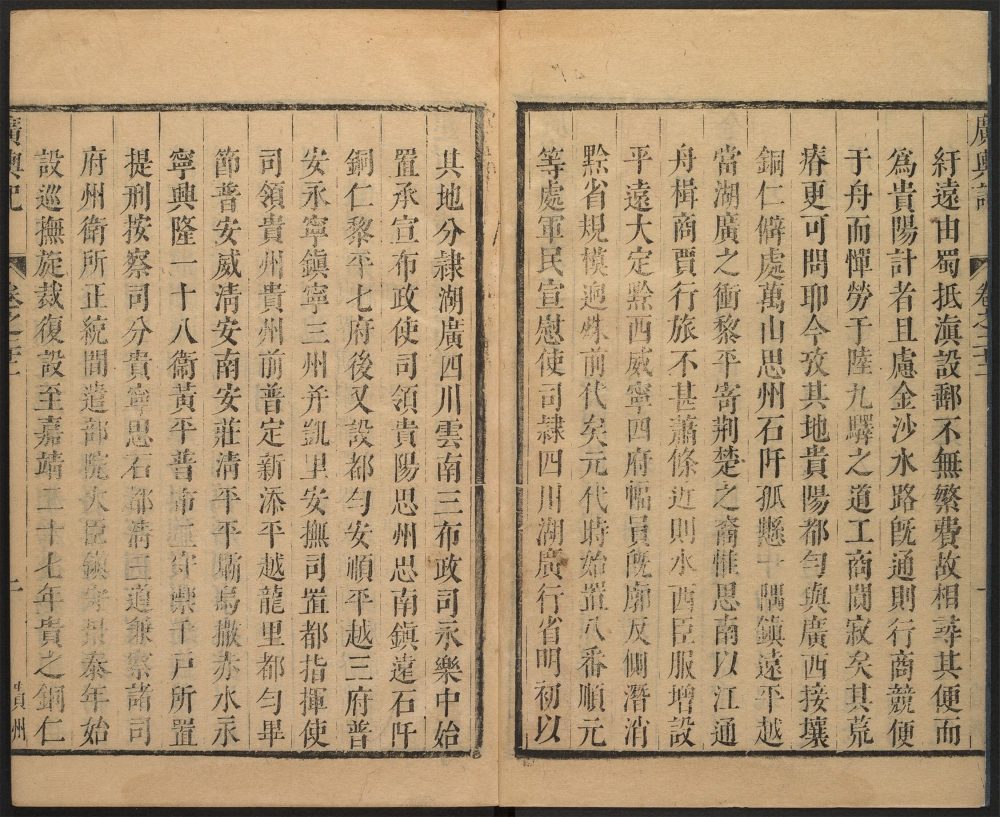 廣輿記 卷之二十二
紆遠由蜀抵滇設郵不無繁費故相尋其便而
爲貴陽計者且慮金沙水路旣通則行商競便
于舟而憚勞于陸九驛之道工商闃寂矣其荒
瘠更可問耶今攷其地貴陽都勻與廣西接壤
銅仁僻處萬山思州石阡孤懸一隅鎮遠平越
當湖廣之衝黎平寄荆楚之裔惟思南以江通
舟楫商賈行旅不甚蕭條近則水西臣服增設
平遠大定黔西威寧四府幅員旣廓反側潛消
黔省規模逈殊前代矣元代時始置八番順元
等處軍民宣慰使司隷四川湖廣行省明初以
其地分隷湖廣四川雲南三布政司永樂中始
置承宣布政使司領貴陽思州思南鎮遠石阡
銅仁黎平七府後又設都勻安順平越三府普
安永寧鎮寧三州并凱里安撫司置都指揮使
司領貴州貴州前普定新添平越龍里都勻畢
節普安威淸安南安莊淸平平壩烏撒赤水永
寧興隆一十八衛黃平普市 千戶所置
提刑按察司分貴寧思石都淸 道兼察諸司
府州衛所正統間遣部院大臣鎮守景泰年始
設巡撫旋裁復設至嘉靖三十七年貴之銅仁
廣輿記 卷之二十二 一 貴州